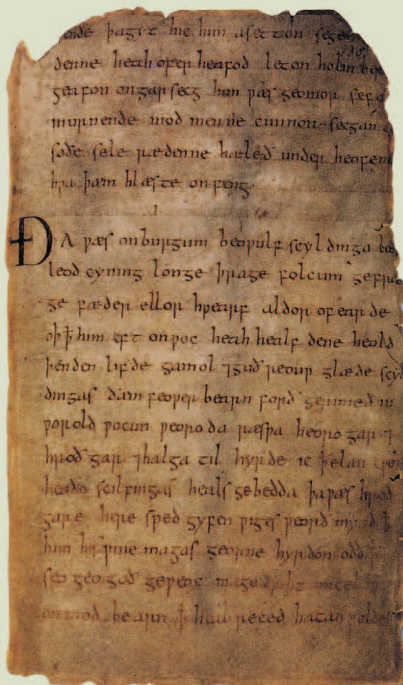 ende þagyt hie him asetton segen
denne heah ofer heafod leton holm ber
geafon ongarsecg him ƿæs geomor sefa
murnende mod men ne cunnon secgan
soðe sele rædenne hæleð under heofen
hƿa þæm hlæste onfeng
ÐA ƿæs onburgum beoƿulf scyldinga
leod cyning longe þrage folcum gefræ
ge fæder ellor hƿearf aldor ofearde
oþ ꝥ him eft onƿoc heah healf dene heold
þenden lifde gamol ⁊guð reouƿ glæde scyl
dingas ðæm feoƿer bearn forð gerimed in
ƿorold ƿocun ƿeoroda ræsƿa heoro gar ⁊
hroð gar ⁊halga til hyrde ic ꝥ elan cƿen
heaðo scilfingas heals gebedda þaƿæs hroð
gare here sped gyfen ƿiges ƿeorð mynd ꝥ
him his ƿine magas georne hyrdon oðð
seo geogoð geƿeox mago driht micel
onmod bearn ꝥ heal reced hatan ƿolde